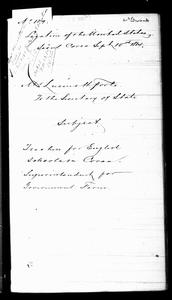 No. 104
Legation of the United States,
Seoul Corea Sept 10th 1884.
Mr. Lucius H. Foote
To the Secretary of State
Subject
Teachers for English
Schools in Corea.
Superintendent for
Government Farm